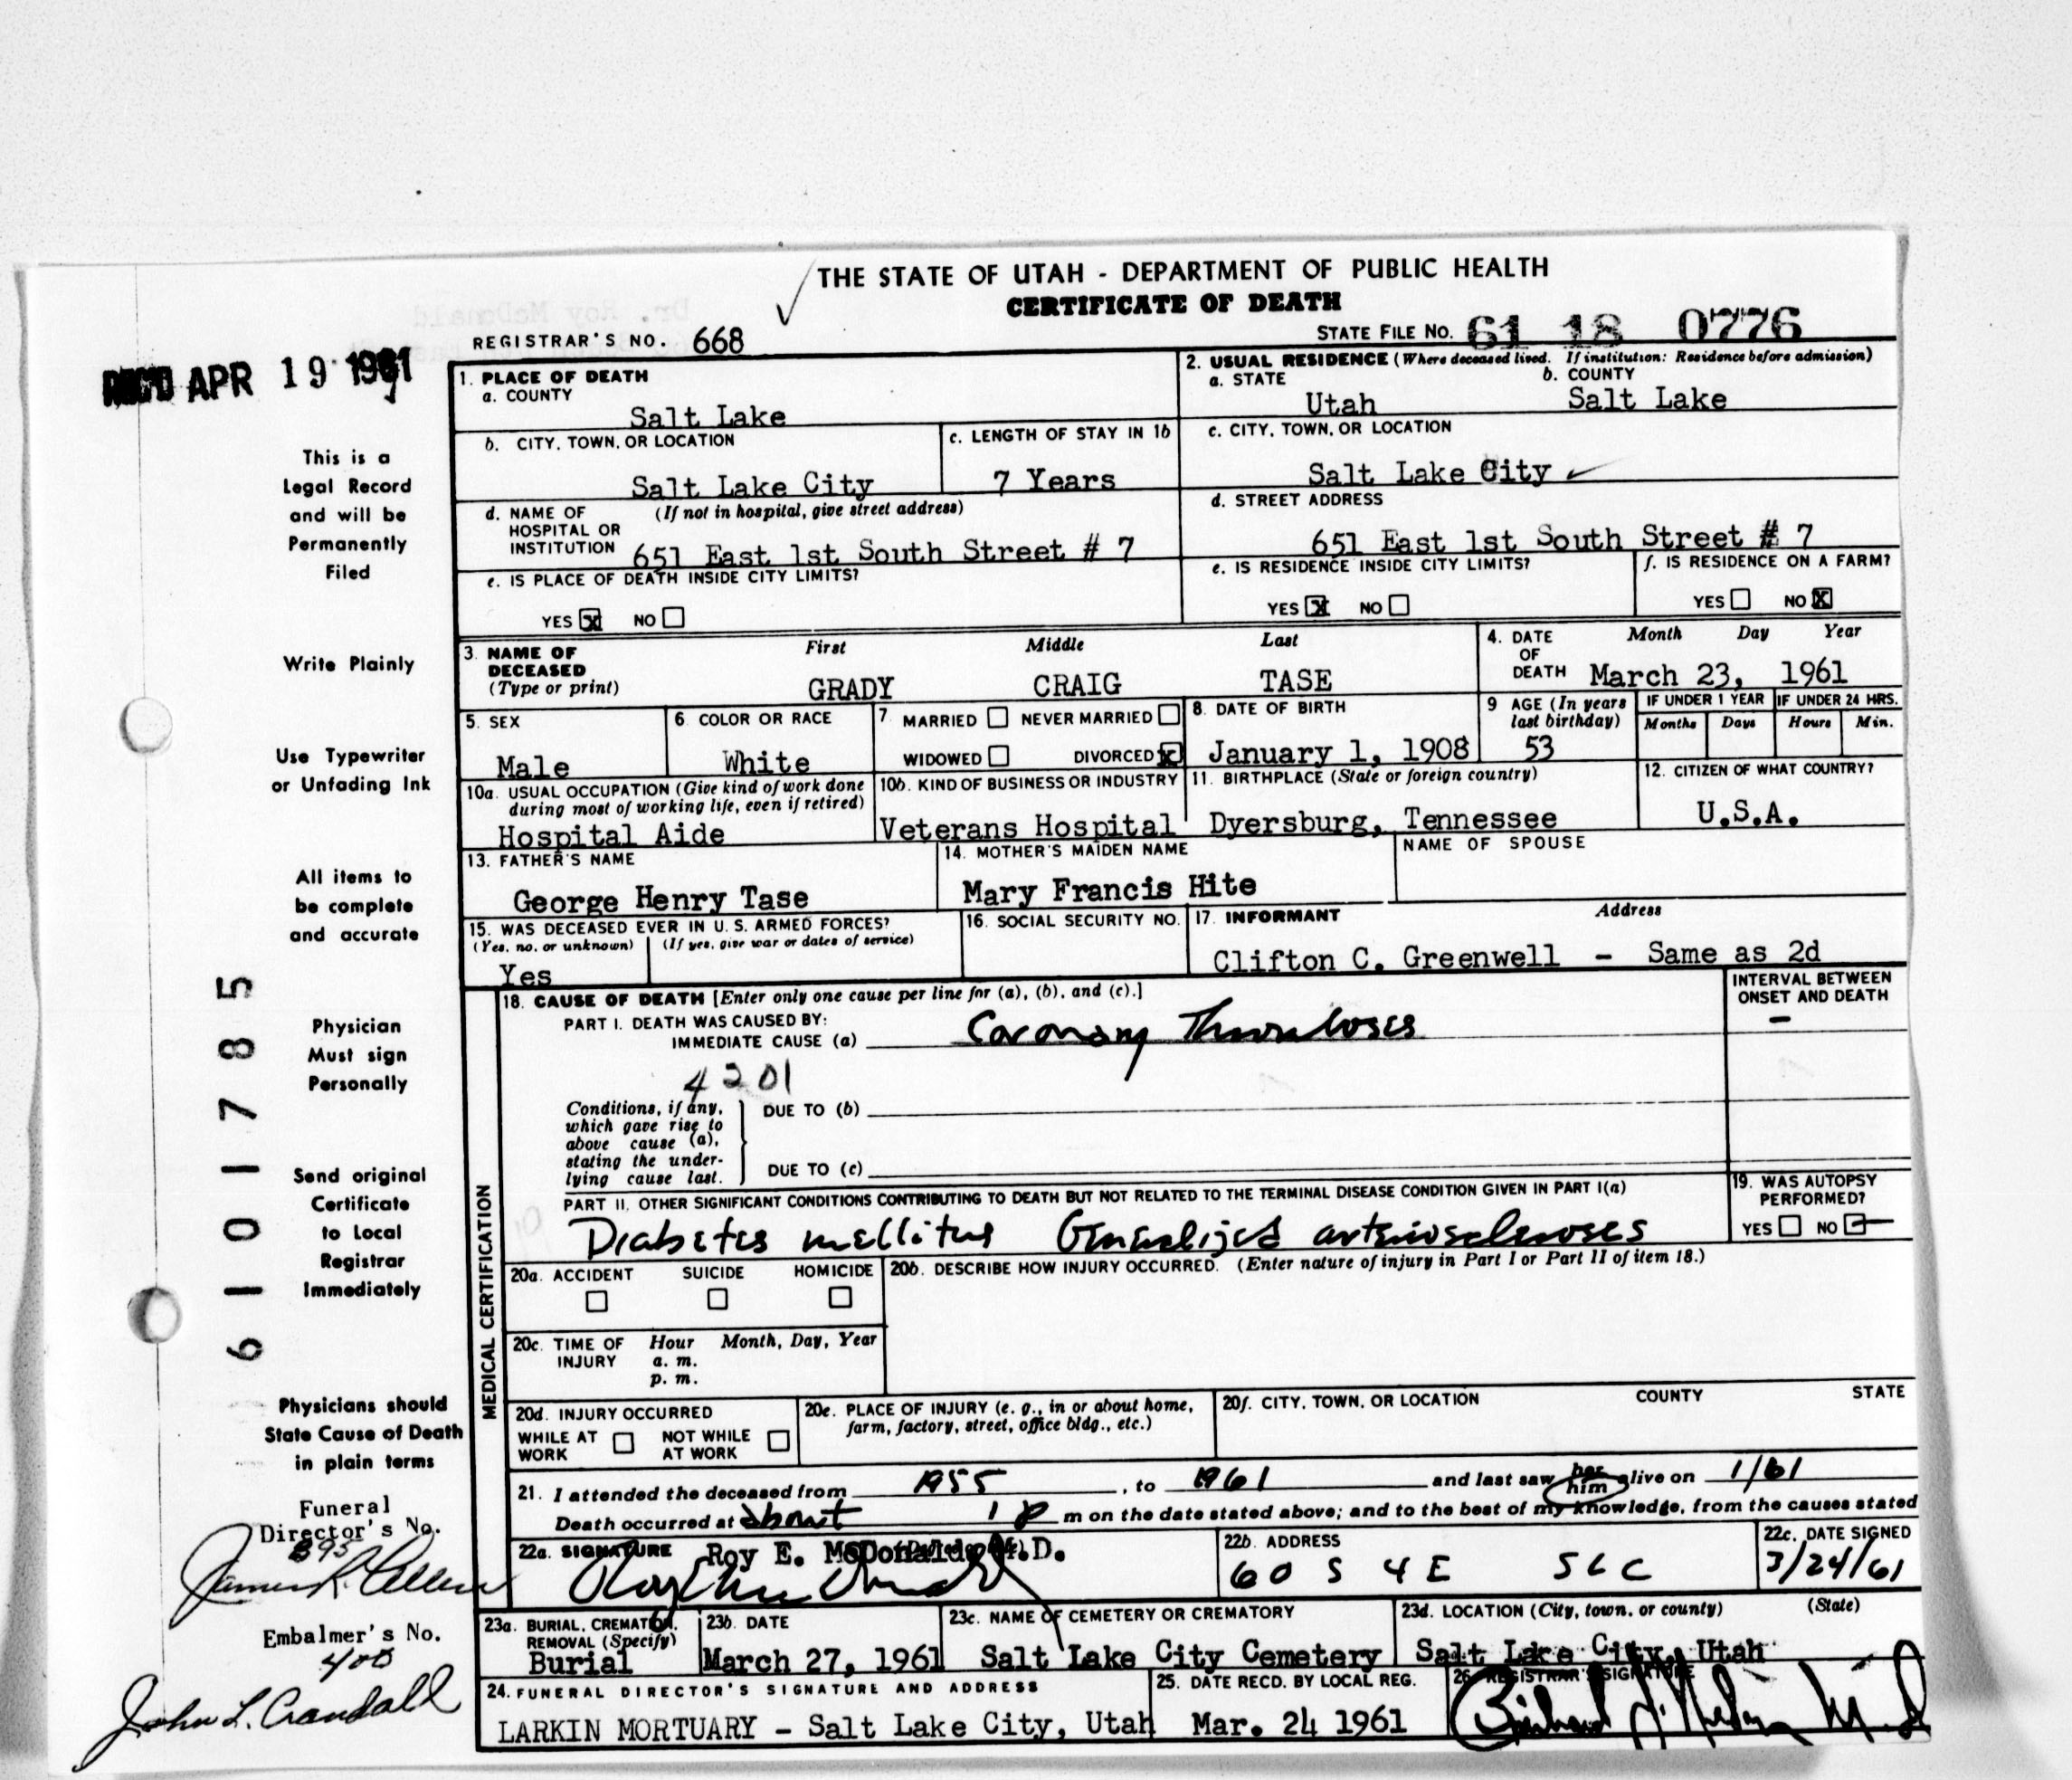 THE STATE OF UTAH - DEPARTMENT OF PUBLIC HEALTH
CERTIFICATE OF DEATH
REGISTRAR'S NO. 668
STATE FILE NO. 61 18 0776
REC'D APR 19 1961
1. PLACE OF DEATH
a. COUNTY
Salt Lake
2. USUAL RESIDENCE (Where deceased lived. If institution: Residence before admission)
a. STATE b. COUNTY
Utah Salt Lake
b. CITY, TOWN, OR LOCATION
Salt Lake City
c. LENGTH OF STAY IN 1b
7 Years
c. CITY, TOWN, OR LOCATION
Salt Lake City
d. NAME OF HOSPITAL OR INSTITUTION (If not in hospital, give street address)
651 East 1st South Street # 7
d. STREET ADDRESS
651 East 1st South Street # 7
e. IS PLACE OF DEATH INSIDE CITY LIMITS?
YES X NO
e. IS RESIDENCE INSIDE CITY LIMITS?
YES X NO
f. IS RESIDENCE ON A FARM?
YES NO X
3. NAME OF DECEASED (Type or print)
First Middle Last
GRADY CRAIG TASE
4. DATE OF DEATH Month Day Year
March 23, 1961
5. SEX
Male
6. COLOR OR RACE
White
7. MARRIED NEVER MARRIED
WIDOWED DIVORCED X
8. DATE OF BIRTH
January 1, 1908
9 AGE (In years last birthday)
53
IF UNDER 1 YEAR IF UNDER 24 HRS.
Months Days Hours Min.
10a. USUAL OCCUPATION (Give kind of work done during most of working life, even if retired)
Hospital Aide
10b. KIND OF BUSINESS OR INDUSTRY
Veterans Hospital
11. BIRTHPLACE (State or foreign country)
Dyersburg, Tennessee
12. CITIZEN OF WHAT COUNTRY?
U.S.A.
13. FATHER'S NAME
George Henry Tase
14. MOTHER'S MAIDEN NAME
Mary Francis Hite
NAME OF SPOUSE
15. WAS DECEASED EVER IN U. S. ARMED FORCES?
(Yes, no. or unknown) (If yes, give war or dates of service)
Yes
16. SOCIAL SECURITY NO.
17. INFORMANT Address
Clifton C. Greenwell - Same as 2d
MEDICAL CERTIFICATION
18. CAUSE OF DEATH [Enter only one cause per line for (a), (b), and (c).]
INTERVAL BETWEEN ONSET AND DEATH
PART I. DEATH WAS CAUSED BY:
IMMEDIATE CAUSE (a) Coronary Thrombosis -
4201
Conditions, if any, which gave rise to above cause (a), stating the underlying cause last.
DUE TO (b)
DUE TO (c)
PART II. OTHER SIGNIFICANT CONDITIONS CONTRIBUTING TO DEATH BUT NOT RELATED TO THE TERMINAL DISEASE CONDITION GIVEN IN PART I(a)
Diabetes mellitus Generalized arteriosclerosis
19. WAS AUTOPSY PERFORMED?
YES NO
20a. ACCIDENT SUICIDE HOMICIDE
20b. DESCRIBE HOW INJURY OCCURRED. (Enter nature of injury in Part I or Part II of item 18.)
20c. TIME OF INJURY Hour Month, Day, Year
a. m.
p. m.
20d. INJURY OCCURRED
WHILE AT WORK NOT WHILE AT WORK
20e. PLACE OF INJURY (e. g., in or about home, farm, factory, street, office bldg., etc.)
20f. CITY, TOWN, OR LOCATION COUNTY STATE
21. I attended the deceased from 1955, to 1961 and last saw her him alive on 1/61
Death occurred at about 1 P m on the date stated above; and to the best of my knowledge, from the causes stated
22a. SIGNATURE Roy E. McDonald, M.D.
22b. ADDRESS
60 S 4 E SLC
22c. DATE SIGNED
3/24/61
23a. BURIAL, CREMATION, REMOVAL (Specify)
Burial
23b. DATE
March 27, 1961
23c. NAME OF CEMETERY OR CREMATORY
Salt Lake City Cemetery
23d. LOCATION (City, town, or county) (State)
Salt Lake City, Utah
24. FUNERAL DIRECTOR'S SIGNATURE AND ADDRESS
LARKIN MORTUARY - Salt Lake City, Utah
25. DATE RECD. BY LOCAL REG.
Mar. 24 1961
26. REGISTRAR'S SIGNATURE
This is a
Legal Record
and will be
Permanently
Filed
Write Plainly
Use Typewriter
or Unfading Ink
All items to
be complete
and accurate
Physician
Must sign
Personally
Send original
Certificate
to Local
Registrar
Immediately
Physicians should
State Cause of Death
in plain terms
Funeral
Director's No.
Embalmer's No.
400
John L. Crandall
6101785